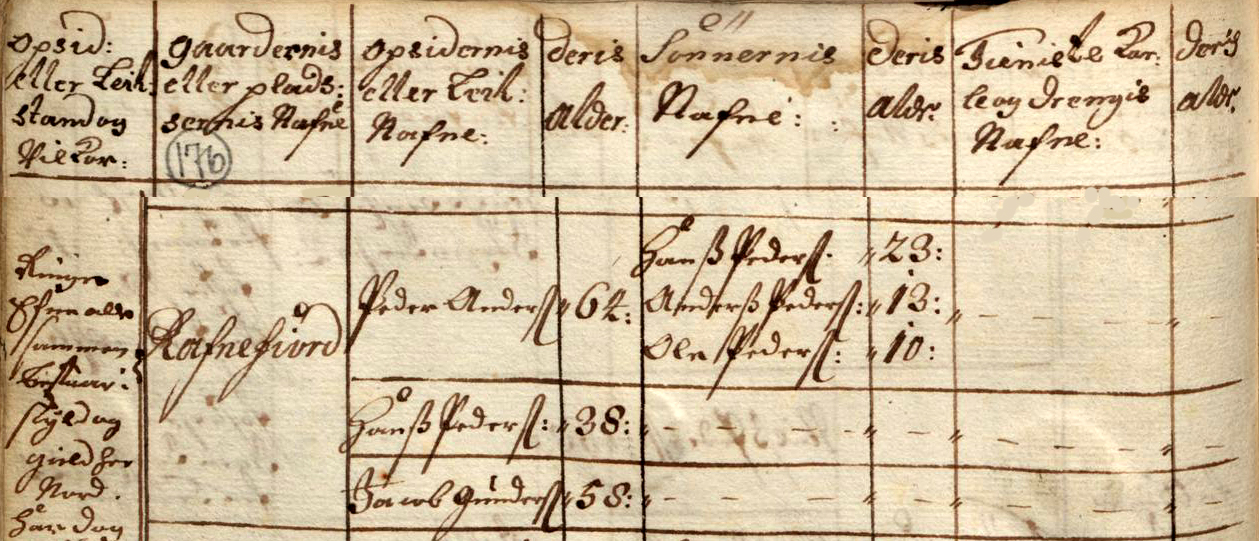 opsid:
eller Leil:
stand og
Vilkor:
gaardernis
eller plads:
sernis Nafne
176
opsidernis
eller Leil:
Nafne:
deris
alder:
Sönnernis
Nafne:
deris
aldr:
Tieniste kar:
le og drengis
Nafne:
deris
aldr:
Ringe
sammen
schyld og
gield her
Nord.
Rafnefiord
Peder Anderß: 64:
Hanß Pederß: 23:
Anderß Pederß: 13:
Ole Pederß: 10:
Hanß Pederß: 38:
Jacob Gunderß 58: